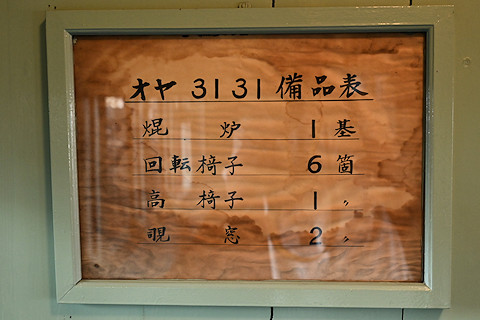 オヤ 3131 備品表
焜炉 1 基
回転椅子 6 箇
高椅子 1 〃
覗窓 2 〃